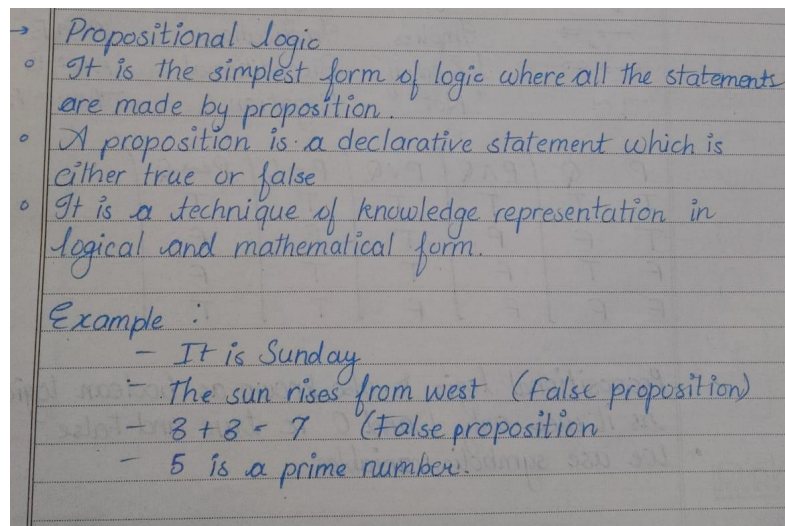 → Propositional logic
° It is the simplest form of logic where all the statements
are made by proposition.
° A proposition is a declarative statement which is
either true or false
° It is a technique of knowledge representation in
logical and mathematical form.
Example :
- It is Sunday
- The sun rises from west (False proposition)
- 3+3 = 7 (False proposition
- 5 is a prime number.